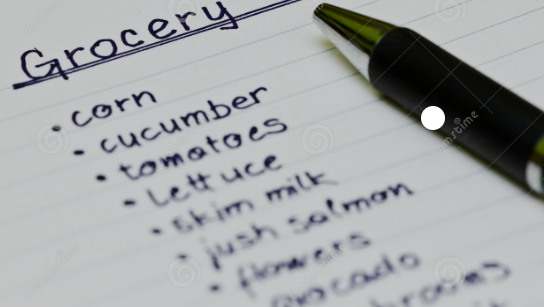 Grocery
• corn
• cucumber
• tomatoes
• lettuce
• skim milk
• jush salmon
• flowers
avocado